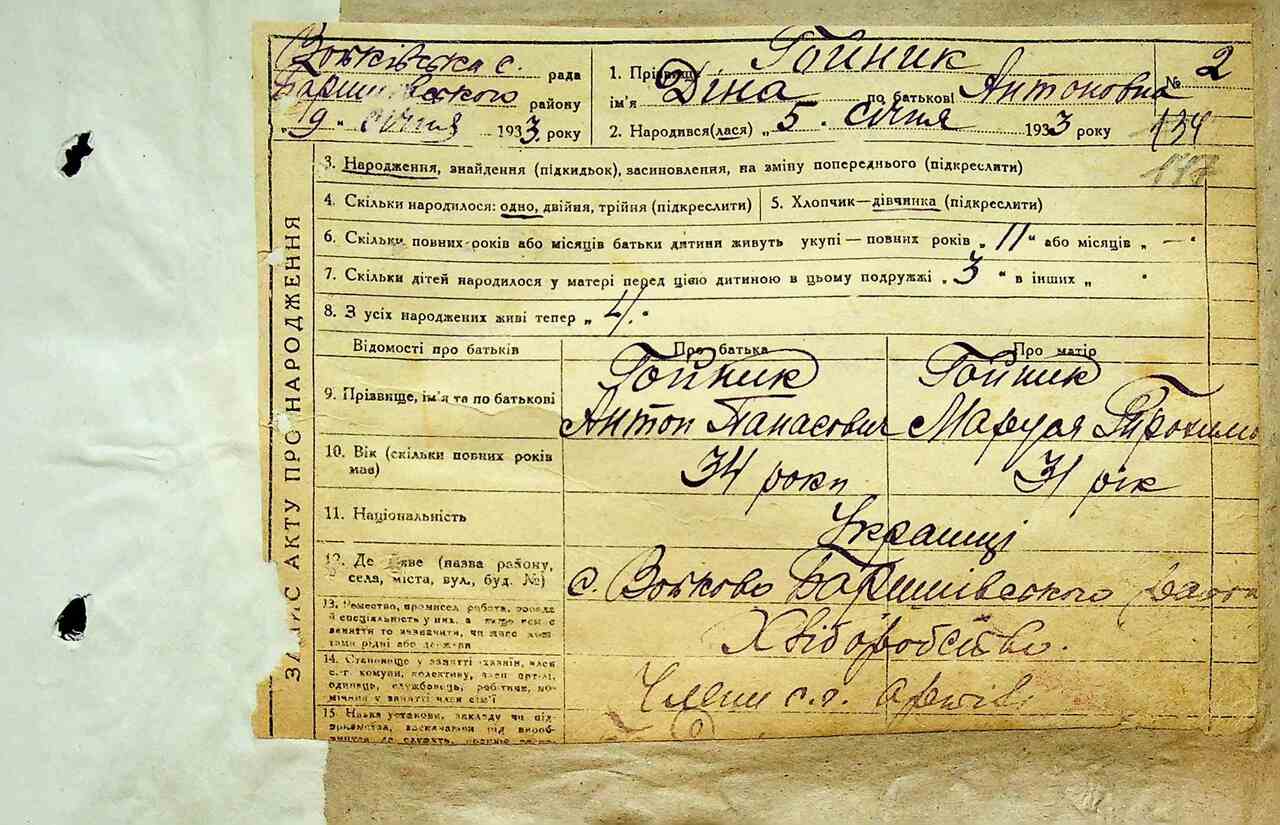 Вовківська с. рада
Баришівського району
"19" січня 1933. року
1. Прізвище Гойник
ім'я Діна по батькові Антоновна
2. Народився(лася) „5. січня 1933 року
№ 2
134
ЗАПИС АКТУ ПРО НАРОДЖЕННЯ
3. Народження, знайдення (підкидьок), засиновлення, на зміну попереднього (підкреслити)
4. Скільки народилося: одно, двійня, трійня (підкреслити)
5. Хлопчик—дівчинка (підкреслити)
6. Скільки повних років або місяців батьки дитини живуть укупі — повних років „ 11 " або місяців „ — "
7. Скільки дітей народилося у матері перед цією дитиною в цьому подружжі „ 3 " в інших „ "
8. З усіх народжених живі тепер „ 4 "
Відомості про батьків
Про батька
Про матір
9. Прізвище, ім'я та по батькові
Гойник
Антон Панасович
Гойник
Маруся Трохимо
10. Вік (скільки повних років має)
34 роки
31 рік
11. Національність
Українці
12. Де живе (назва району,
села, міста, вул., буд. №)
с. Вовково Баришівського
13. Ремество, промисел, работа, посада
й спеціяльність у них, а якщо немає
заняття то зазначити, чи живе кош-
тами рідні або держави
Хліборобство.
14. Становище у занятті: хазяїн, член
с.-г. комуни, колективу, член артілі,
одинець, службовець, робітник, по-
мічник у занятті член сім'ї
Члени с.г. артілі
15 Назва установи, закладу чи під-
приємства, зазначаючи від вироб-